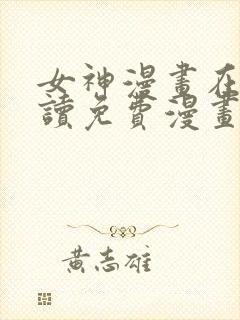 女神漫畫在
讀免費漫畫
黃志雄